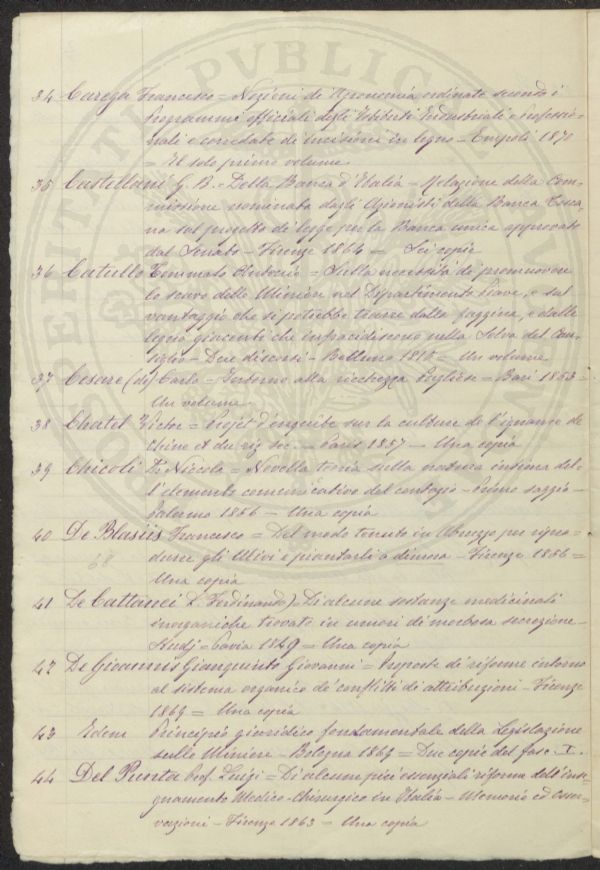 34 Carega Francesco = Nozioni di Agronomia ordinate secondo i
Programmi officiali degli Istituti Industriali e Professio-
nali e corredate di incisioni in legno = Empoli 1871
= Il solo primo volume
35 Castellani G. B. = Della Banca d'Italia = Relazione della Com-
missione nominata dagli Azionisti della Banca Tosca-
na sul progetto di legge per la Banca unica approvato
dal Senato - Firenze 1864 = Sei copie
36 Catullo Tommaso Antonio = Sulla necessità di promuovere
lo scavo delle Miniere nel Dipartimento Piave, e sul
vantaggio che si potrebbe trarre dalla faggina, e dalle
legna giacenti che infracidiscono nella Selva del Con-
siglio - Due discorsi - Belluno 1810 = Un volume
37 Cesare (de) Carlo = Intorno alla ricchezza Pugliese = Bari 1853 =
Un volume
38 Chatel Victor = Projet d'enquête sur la culture de l'igname de
Chine et du riz sec. = Paris 1857 - Una copia
39 Chicoli Di Nicola = Novella teoria sulla natura intima del-
l'elemento comunicativo del contagio - Primo saggio -
Palermo 1856 - Una copia
40 De Blasiis Francesco = Del modo tenuto in Abruzzo per ripro-
durre gli Ulivi e piantarli a dimora - Firenze 1856 =
Una copia
41 De Cattanei D. Ferdinando = Di alcune sostanze medicinali
inorganiche trovate in umori di morbosa secrezione -
Studj = Pavia 1849 = Una copia
42 De Gioannis Gianquinto Giovanni = Proposte di riforme intorno
al sistema organico de' conflitti di attribuzioni - Firenze
1869 = Una copia
43 Idem Principio giuridico fondamentale della Legislazione
sulle Miniere - Bologna 1869 = Due copie del fasc. I.
44 Del Punta Prof. Luigi = Di alcune più essenziali riforme dell'inse-
gnamento Medico-Chirurgico in Italia - Memorie ed Osser-
vazioni - Firenze 1863 = Una copia